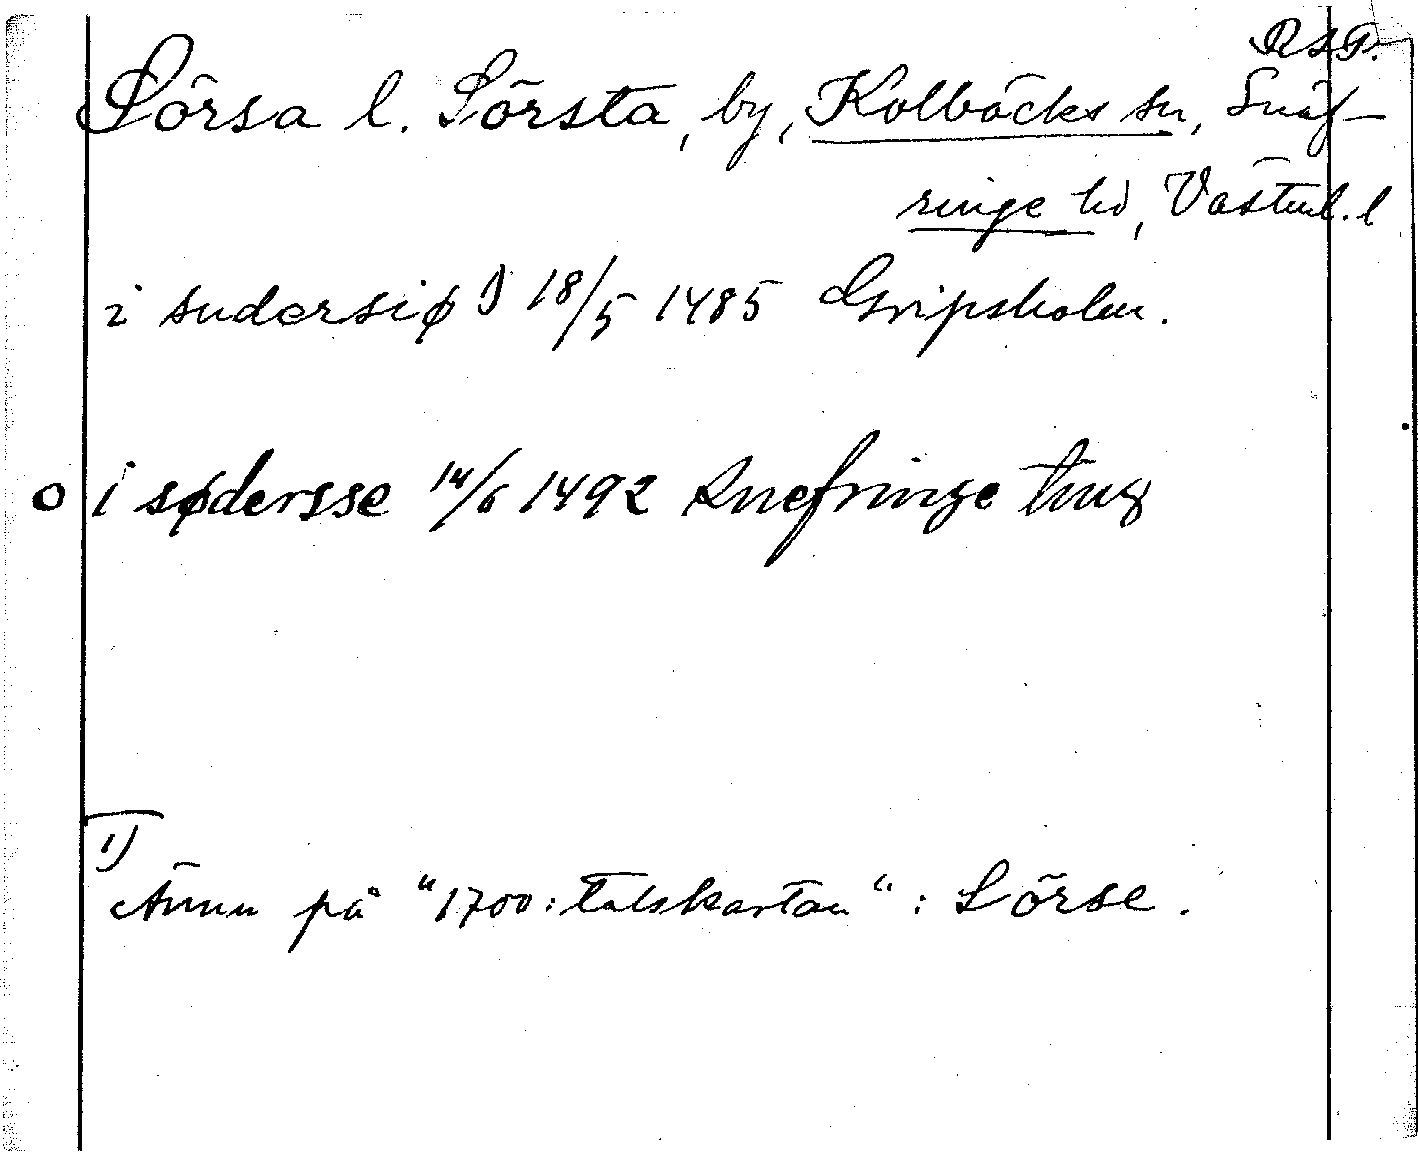 R S T.
Sörsa l. Sörsta, by, Kolbäcks sn, Snäf-
ringe hd, Västml. l
i sudersiø 1) 18/5 1485 Gripsholm.
o i sødersse 14/6 1492 Snefringe ting
1)
Ännu på "1700: talskartan" : Sörse.